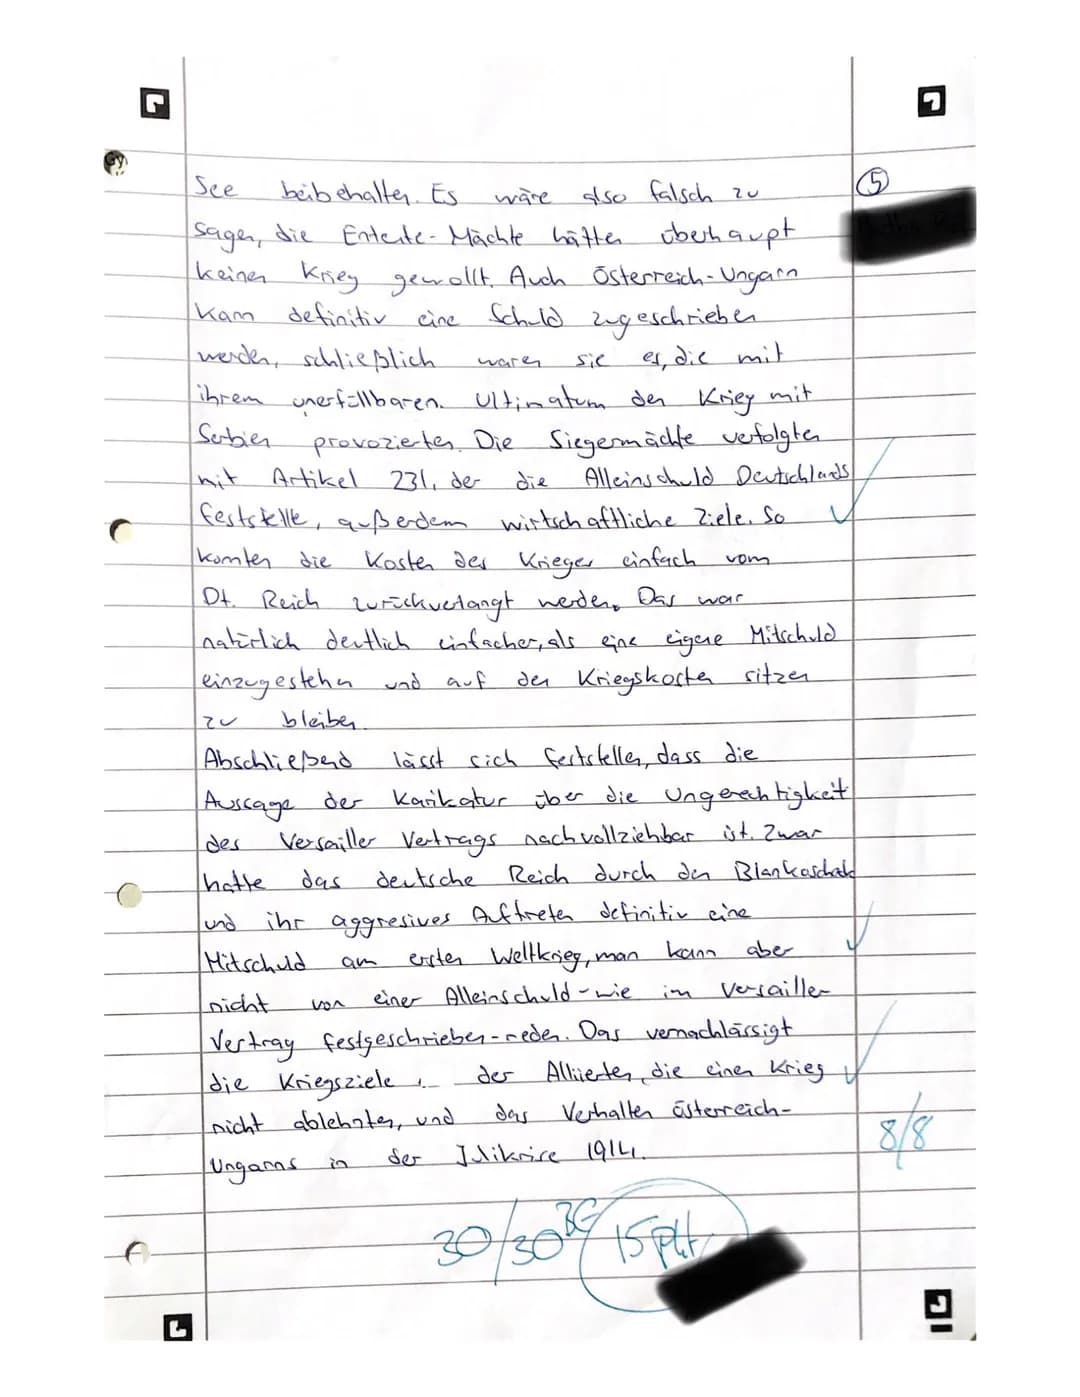 ⑤
See beibehalten. Es wäre also falsch zu
sagen, die Entente-Mächte hätten überhaupt
keinen Krieg gewollt. Auch Österreich-Ungarn
kann definitiv eine Schuld zugeschrieben
werden, schließlich waren sie es, die mit
ihrem unerfüllbaren Ultimatum den Krieg mit
Serbien provozierten. Die Siegermächte verfolgten
mit Artikel 231, der die Alleinschuld Deutschlands
feststellte, außerdem wirtschaftliche Ziele. So
konnten die Kosten des Krieges einfach vom
Dt. Reich zurückverlangt werden. Das war
natürlich deutlich einfacher, als eine eigene Mitschuld
einzugestehen und auf den Kriegskosten sitzen
zu bleiben.
Abschließend lässt sich feststellen, dass die
Aussage der Karikatur über die Ungerechtigkeit
des Versailler Vertrags nachvollziehbar ist. Zwar
hatte das deutsche Reich durch den Blankoscheck
und ihr aggresives Auftreten definitiv eine
Mitschuld am ersten Weltkrieg, man kann aber
nicht von einer Alleinschuld - wie im Versailler
Vertrag festgeschrieben - reden. Das vernachlässigt
die Kriegsziele der Alliierten, die einen Krieg
nicht ablehnten, und das Verhalten Österreich-
Ungarns in der Julikrise 1914.
8/8
30/30 BE 15 Pkt.